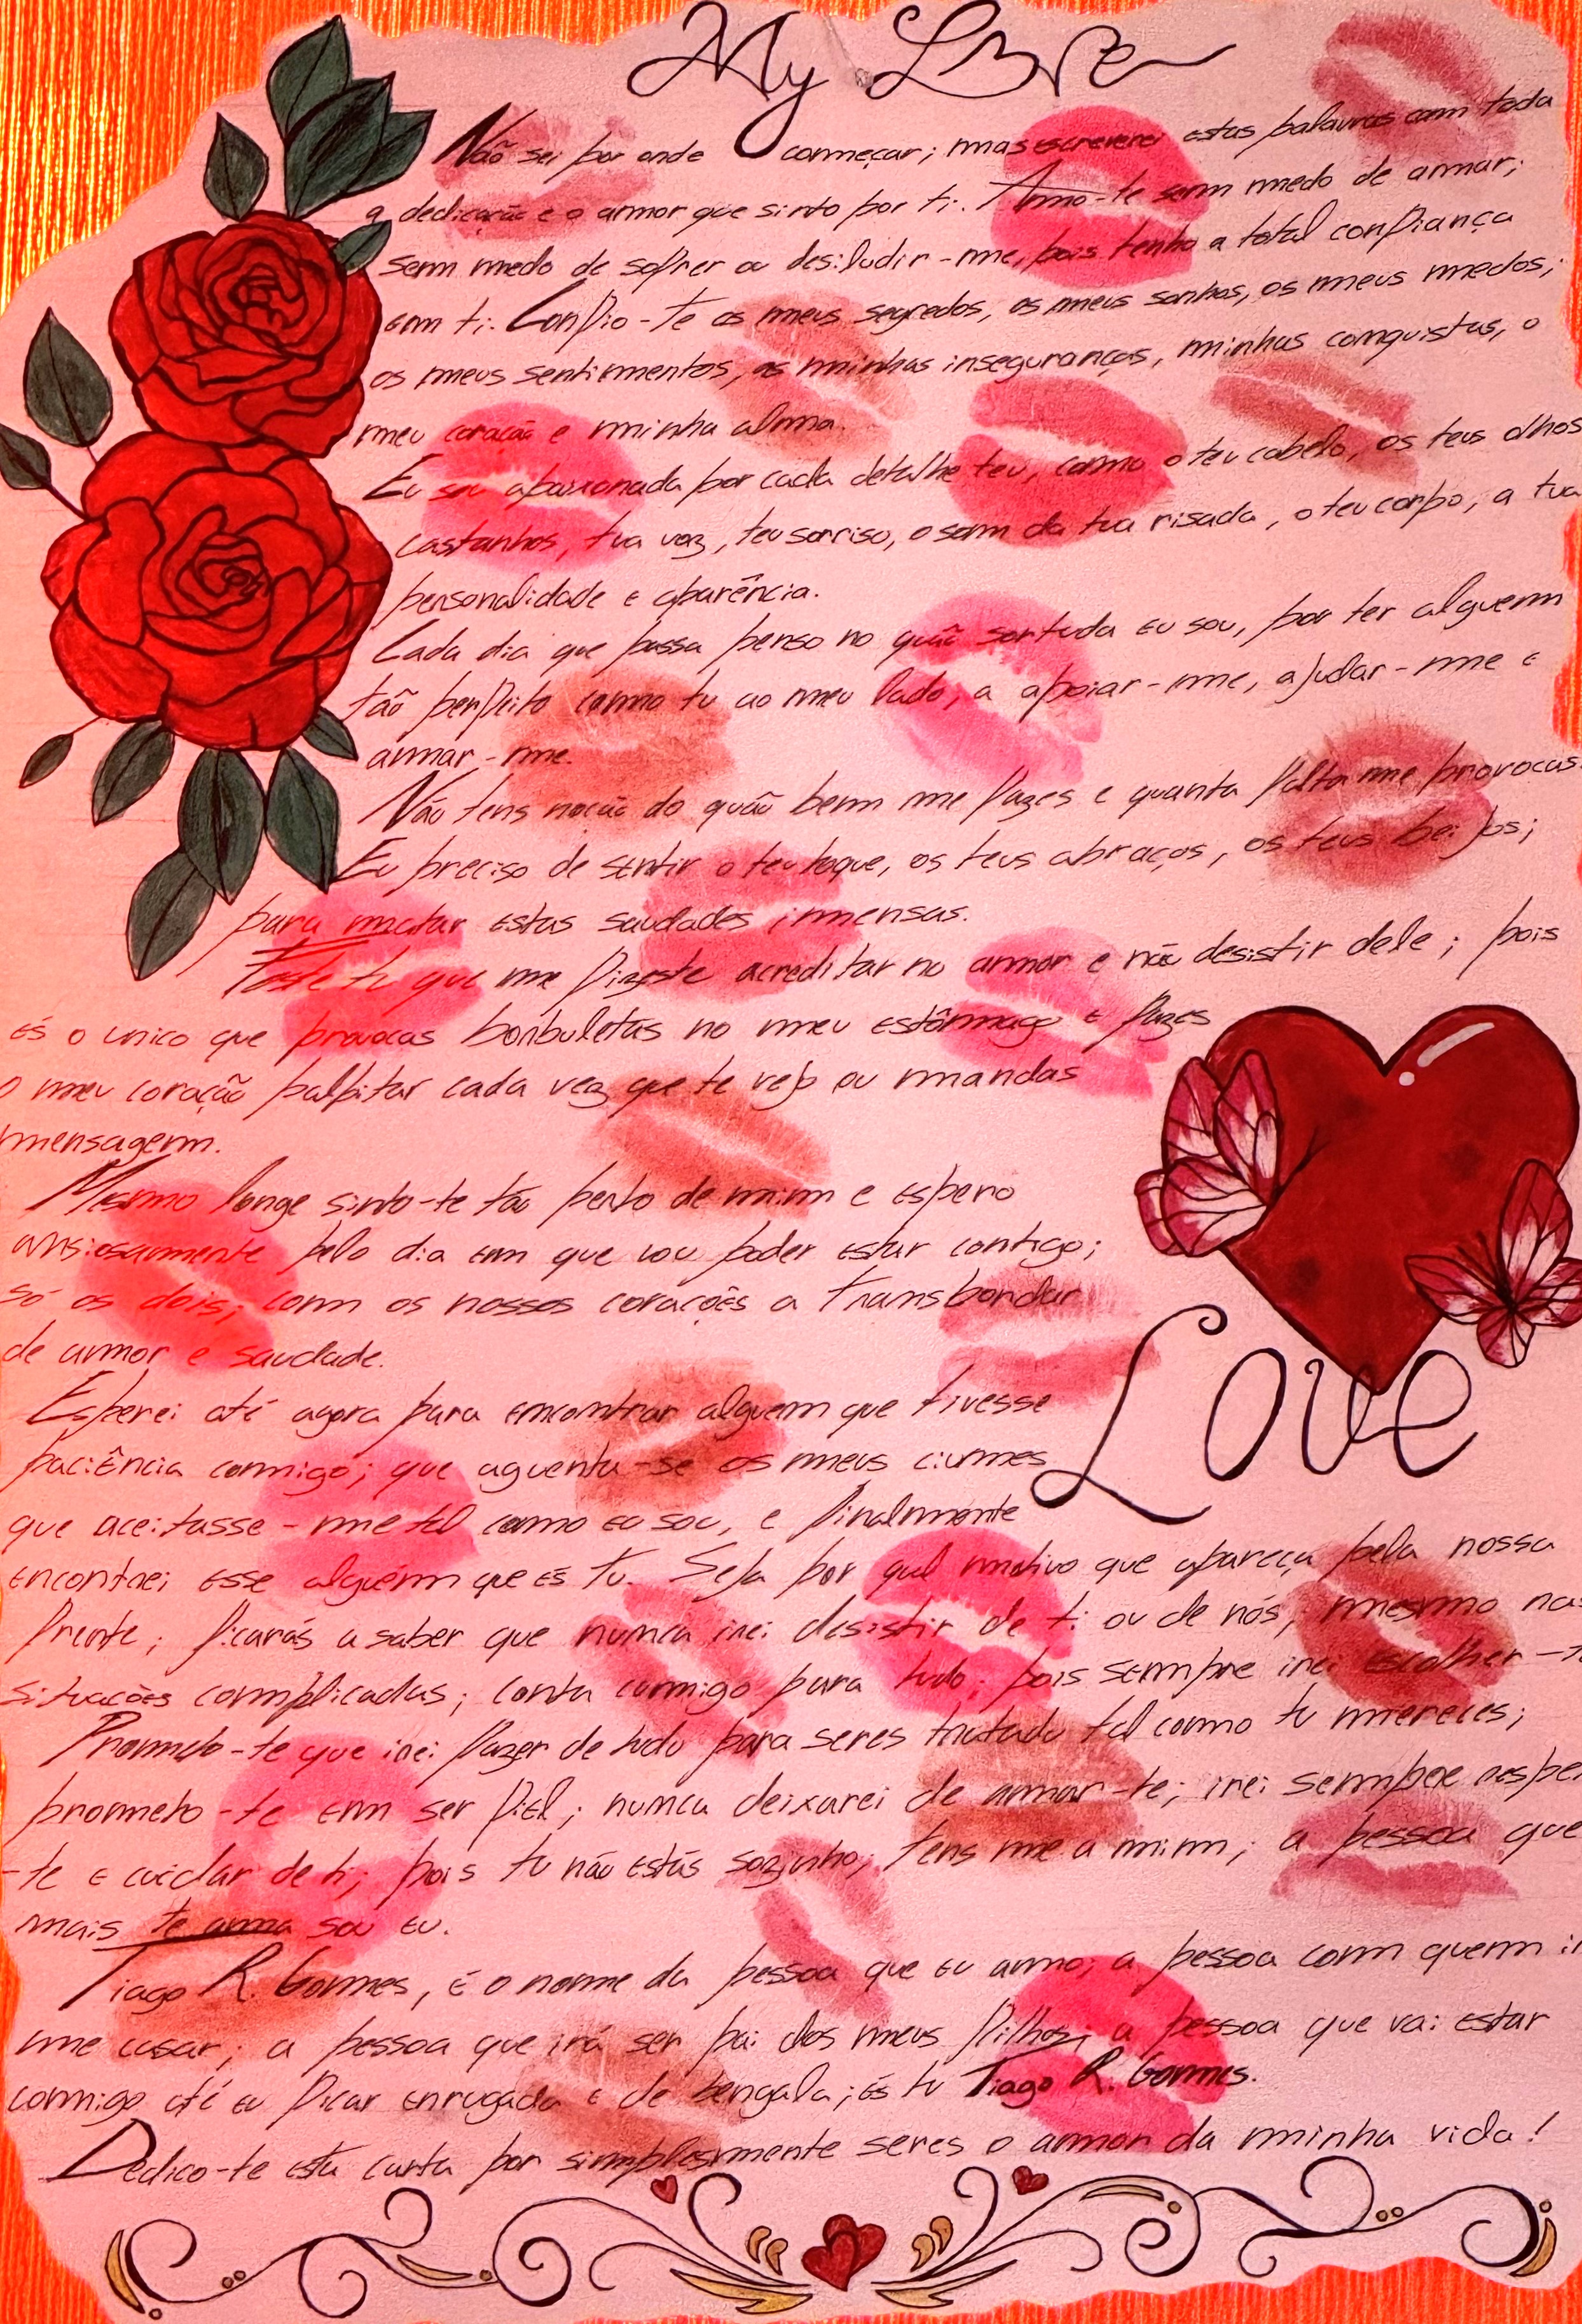 My Love
Não sei por onde começar; mas escreverei estas palavras com toda
a dedicação e o amor que sinto por ti. Amo-te sem medo de amar;
sem medo de sofrer ou desiludir-me, pois tenho a total confiança
em ti. Confio-te os meus segredos, os meus sonhos, os meus medos;
os meus sentimentos, as minhas inseguranças, minhas conquistas, o
meu coração e minha alma.
Eu sou apaixonada por cada detalhe teu, como o teu cabelo, os teus olhos
castanhos, tua voz, teu sorriso, o som da tua risada, o teu corpo, a tua
personalidade e aparência.
Cada dia que passa penso no quão sortuda eu sou, por ter alguem
tão perfeito como tu ao meu lado, a apoiar-me, ajudar-me e
amar-me.
Não tens noção do quão bem me fazes e quanta falta me provocas.
Eu preciso de sentir o teu toque, os teus abraços, os teus beijos;
para matar estas saudades imensas.
Foste tu que me fizeste acreditar no amor e não desistir dele; pois
és o unico que provocas borbuletas no meu estômago e fazes
o meu coração palpitar cada vez que te vejo ou mandas
mensagem.
Mesmo longe sinto-te tão perto de mim e espero
ansiosamente pelo dia em que vou poder estar contigo;
só os dois; com os nossos corações a transbordar
de amor e saudade.
Esperei até agora para encontrar alguem que tivesse
paciência comigo; que aguenta-se os meus ciumes
que aceitasse-me tal como eu sou, e finalmente
encontrei esse alguém que es tu. Seja por qual motivo que apareça pela nossa
frente; ficarás a saber que nunca irei desistir de ti ou de nós; mesmo nas
situações complicadas; conta comigo para tudo; pois sempre irei escolher-t
Prometo-te que irei fazer de tudo para seres tratado tal como tu mereces;
prometo-te em ser fiel; nunca deixarei de amar-te; irei sempre respei
-te e cuidar de ti; pois tu não estás sozinho; tens me a mim; a pessoa que
mais te ama sou eu.
Tiago R. Gomes, é o nome da pessoa que eu amo; a pessoa com quem ir
me casar; a pessoa que irá ser pai dos meus filhos; a pessoa que vai estar
comigo até eu ficar enrugada e de bengala; és tu Tiago R. Gomes.
Dedico-te esta carta por simplesmente seres o amor da minha vida!
Love